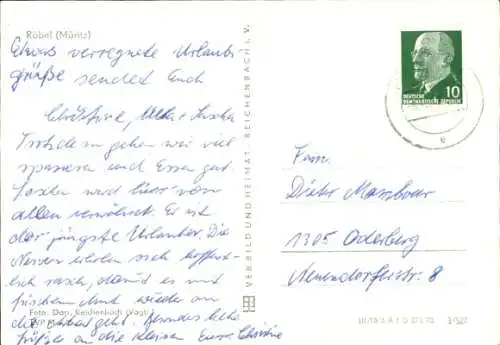 Röbel (Müritz)
Etwas verregnete Urlaubs-
grüße sendet Euch
Christine,
Trotzdem gehen wir viel
spazieren und Essen gut.
wird hier von
allen verwöhnt. Er ist
der jüngste Urlauber. Die
Nerven erholen sich hoffent-
lich rasch, damit es mit
frischem Mut wieder an
die geht. Besonders liebe
Grüße an die kleinen Eure Christine
Foto: Dop. Reichenbach (Vogtl.)
VEB BILD UND HEIMAT REICHENBACH I. V.
10
DEUTSCHE
DEMOKRATISCHE REPUBLIK
e
Fam.
Dieter
1305 Oderberg
Neuendorferstr. 8